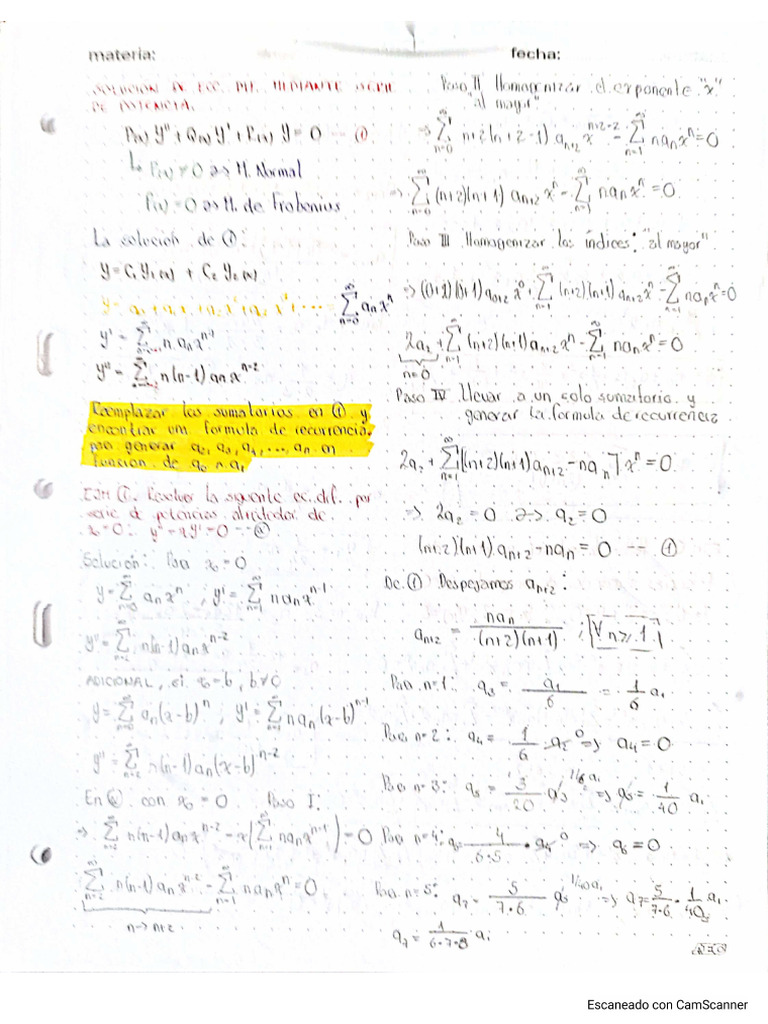 materia:
fecha:
SOLUCION DE ECC. DIF. MEDIANTE SERIE
DE POTENCIA.
P(x) y'' + Q(x) y' + R(x) y = 0 --- ①
↳ P(x) ≠ 0 => M. Normal
P(x) = 0 => M. de Frobenius
La solución de ①:
y = C₁ y₁(x) + C₂ y₂(x)
y = a₀ + a₁x + a₂x² + a₃x³ + ..... = ∑_{n=0}^{∞} aₙxⁿ
y' = ∑^{∞} n aₙxⁿ⁻¹
y'' = ∑^{∞} n(n-1) aₙxⁿ⁻²
Reemplazar las sumatorias en ① y
encontrar una formula de recurrencia,
para generar a₂, a₃, a₄, ..., aₙ en
función de a₀ ∧ a₁
① Resolver la siguiente ec. dif. por
serie de potencias alrededor de
x₀=0: y'' - xy' = 0 --- ⓐ
Solución: Para x₀ = 0
y = ∑_{n=0}^{∞} aₙxⁿ , y' = ∑_{n=1}^{∞} n aₙxⁿ⁻¹
y'' = ∑_{n=2}^{∞} n(n-1) aₙxⁿ⁻²
ADICIONAL, si x₀ = b, b ≠ 0
y = ∑_{n=0}^{∞} aₙ(x-b)ⁿ ; y' = ∑_{n=1}^{∞} n aₙ(x-b)ⁿ⁻¹
y'' = ∑_{n=2}^{∞} n(n-1) aₙ(x-b)ⁿ⁻²
En ⓐ con x₀ = 0 Paso I:
=> ∑_{n=2}^{∞} n(n-1) aₙxⁿ⁻² - x(∑_{n=1}^{∞} n aₙxⁿ⁻¹) = 0
∑_{n=2}^{∞} n(n-1) aₙxⁿ⁻² - ∑_{n=1}^{∞} n aₙxⁿ = 0
n → n+2
Paso II Homogenizar el exponente "x"
"al mayor"
=> ∑_{n=0}^{∞} n+2(n+2-1) aₙ₊₂ xⁿ⁺²⁻² - ∑_{n=1}^{∞} n aₙxⁿ = 0
=> ∑_{n=0}^{∞} (n+2)(n+1) aₙ₊₂ xⁿ - ∑_{n=1}^{∞} n aₙxⁿ = 0
Paso III Homogenizar los índices: "al mayor"
=> (0+2)(0+1) a₀₊₂ x⁰ + ∑_{n=1}^{∞} (n+2)(n+1) aₙ₊₂ xⁿ - ∑_{n=1}^{∞} n aₙxⁿ = 0
2a₂ + ∑_{n=1}^{∞} (n+2)(n+1) aₙ₊₂ xⁿ - ∑_{n=1}^{∞} n aₙxⁿ = 0
n=0
Paso IV llevar a un solo sumatorio y
generar la formula de recurrencia
2a₂ + ∑_{n=1}^{∞} [(n+2)(n+1) aₙ₊₂ - n aₙ] xⁿ = 0
=> 2a₂ = 0 => a₂ = 0
(n+2)(n+1) aₙ₊₂ - n aₙ = 0 --- ①
De ① Despejamos aₙ₊₂:
aₙ₊₂ = n aₙ / (n+2)(n+1) ; ∀ n ≥ 1
Para n=1: a₃ = a₁/6 = 1/6 a₁
Para n=2: a₄ = 1/6 a₂ ⁰ => a₄ = 0
Para n=3: a₅ = 3/20 a₃ ^{1/6 a₁} => a₅ = 1/40 a₁
Para n=4: a₆ = 4/6·5 · a₄ ⁰ => a₆ = 0
Para n=5: a₇ = 5/7·6 a₅ ^{1/40 a₁} => a₇ = 5/7·6 · 1/40 a₁
a₇ = 1/6·7·8 a₁
Escaneado con CamScanner